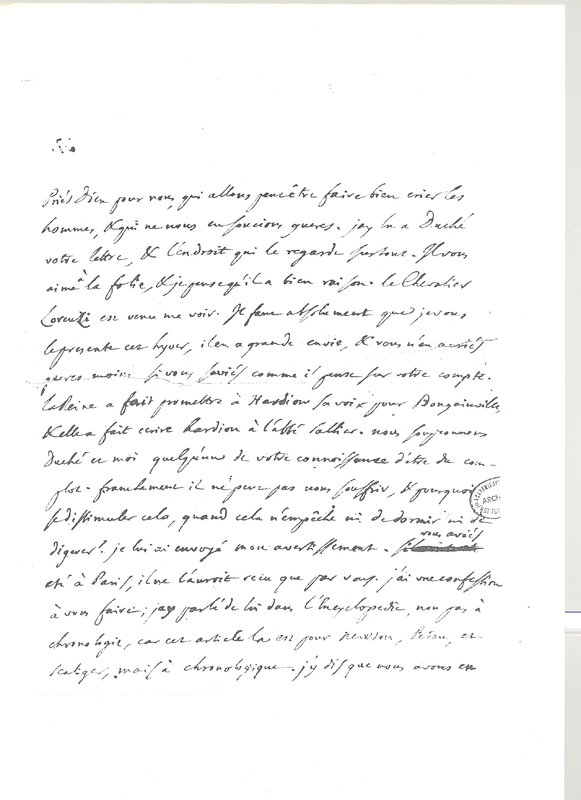 Priés Dieu pour nous, qui allons peut être faire bien crier les
hommes, & qui ne nous en soucions gueres. jay lu a Duché
votre lettre, & l'endroit qui le regarde surtout. Il vous
aime à la folie, & je pense qu'il a bien raison. le Chevalier
Lorenzi est venu me voir. Il faut absolument que je vous
le presente cet hyver, il en a grande envie, & vous n'en auriés
gueres moins si vous saviés comme il pense sur votre compte.
la Reine a fait promettre à Hardion sa voix pour Bougainville
& elle a fait ecrire hardion à l'abbé Sallier. nous soupçonnons
Duché et moi quelqu'un de votre connoissance d'etre du com-
plot. franchement il ne peut pas vous souffrir, & pourquoi
se dissimuler cela, quand cela n'empêche ni de dormir ni de
digerer. je lui ai envoyé mon avertissement. vous aviés
eté à Paris, il ne l'auroit recu que par vous. j'ai une confession
à vous faire; jay parlé de lui dans l'Encyclopedie, non pas à
chronologie, car cet article la est pour Newton, Petau, et
Scaliger, mais à chronologique. j'y dis que nous avons en
ARCH